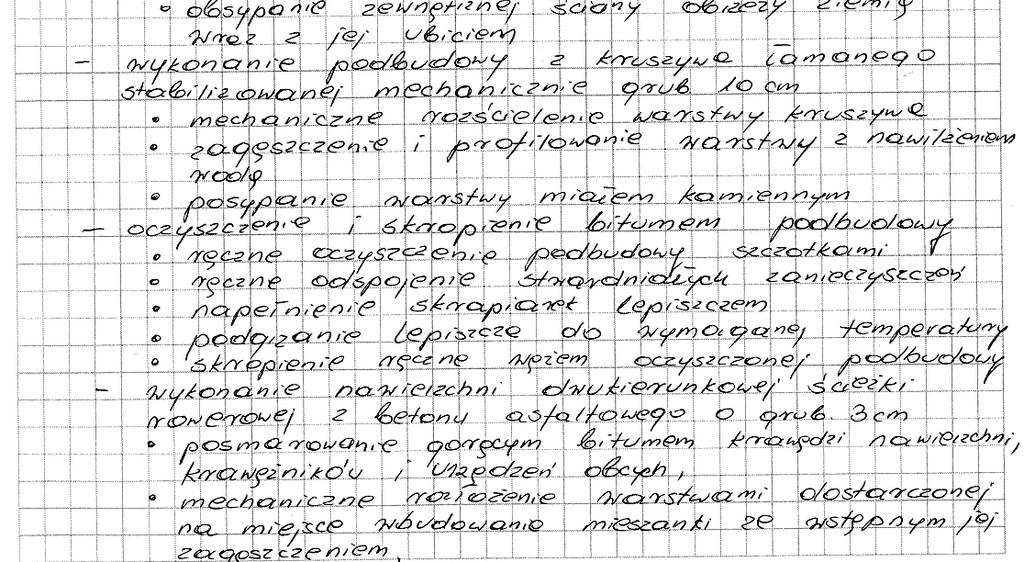 • obsypanie zewnętrznej ściany obrzeży ziemią
wraz z jej ubiciem
- wykonanie podbudowy z kruszywa łamanego
stabilizowanej mechanicznie grub 10 cm
• mechaniczne rozścielenie warstwy kruszywa
• zagęszczenie i profilowanie warstwy z nawilżeniem
wodą
• posypanie warstwy miałem kamiennym
- oczyszczenie i skropienie bitumem podbudowy
• ręczne oczyszczenie podbudowy szczotkami
• ręczne odspojenie stwardniałych zanieczyszczeń
• napełnienie skrapiarek lepiszczem
• podgrzanie lepiszcza do wymaganej temperatury
• skropienie ręczne wężem oczyszczonej podbudowy
- wykonanie nawierzchni dwukierunkowej ścieżki
rowerowej z betonu asfaltowego o grub. 3 cm
• posmarowanie gorącym bitumem krawędzi nawierzchni,
krawężników i urządzeń obcych,
• mechaniczne rozłożenie warstwami dostarczonej
na miejsce wbudowania mieszanki ze wstępnym jej
zagęszczeniem,